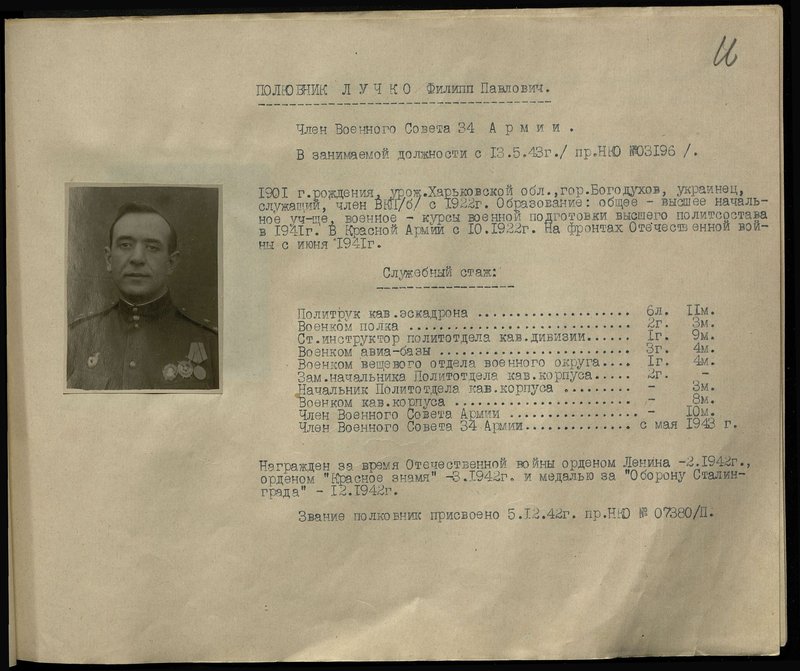 11
ПОЛКОВНИК Л У Ч К О Филипп Павлович.
Член Военного Совета 34 А р м и и .
В занимаемой должности с 13.5.43г./ пр.НКО №03196 /.
1901 г.рождения, урож.Харьковской обл.,гор.Богодухов, украинец,
служащий, член ВКП/б/ с 1922г. Образование: общее - высшее началь-
ное уч-ще, военное - курсы военной подготовки высшего политсостава
в 1941г. В Красной Армии с 10.1922г. На фронтах Отечественной вой-
ны с июня 1941г.
Служебный стаж:
Политрук кав.эскадрона .................... 6л. 11м.
Военком полка ............................. 2г. 3м.
Ст.инструктор политотдела кав.дивизии...... 1г. 9м.
Военком авиа-базы ......................... 3г. 4м.
Военком вещевого отдела военного округа.... 1г. 4м.
Зам.начальника Политотдела кав.корпуса..... 2г. -
Начальник Политотдела кав.корпуса ......... - 3м.
Военком кав.корпуса ....................... - 8м.
Член Военного Совета Армии ................ - 10м.
Член Военного Совета 34 Армии.............. с мая 1943 г.
Награжден за время Отечественной войны орденом Ленина -2.1942г.,
орденом "Красное знамя" -3.1942г. и медалью за "Оборону Сталин-
града" - 12.1942г.
Звание полковник присвоено 5.12.42г. пр.НКО № 07380/П.